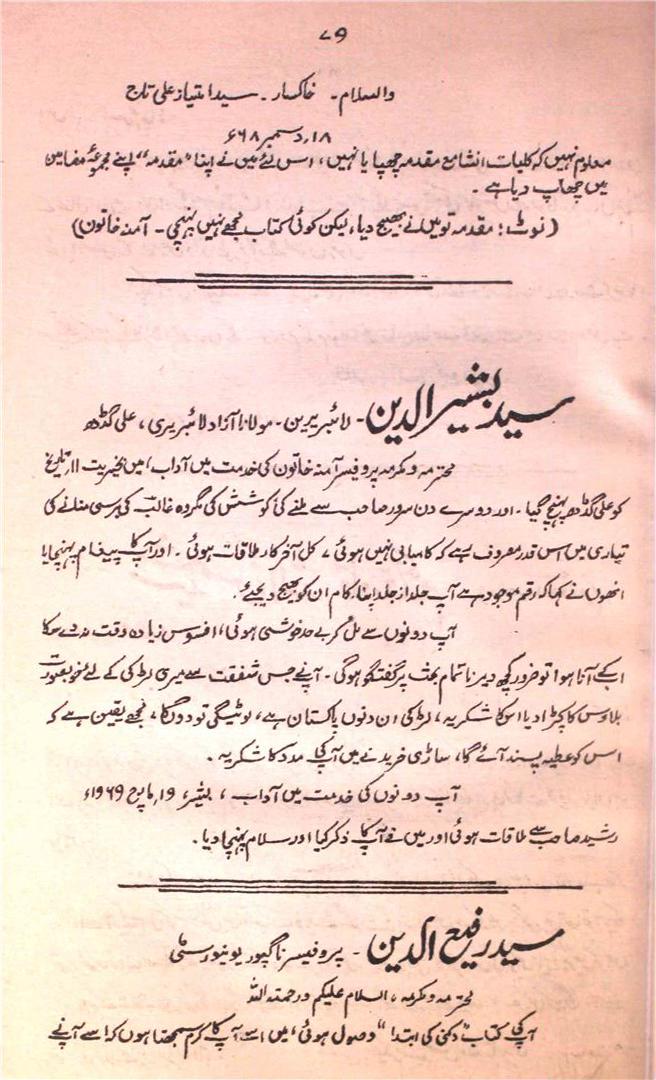 ۷۹
والسلام۔ خاکسار۔ سید امتیاز علی تاج
۱۸؍ دسمبر ۶۸ء
معلوم نہیں کہ کلیات انشا مع مقدمہ چھپا یا نہیں، اس لئے میں نے اپنا "مقدمہ" اپنے مجموعۂ مضامین
میں چھاپ دیا ہے۔
(نوٹ: مقدمہ تو میں نے بھیج دیا، لیکن کوئی کتاب مجھے نہیں پہنچی۔ آمنہ خاتون)
سید بشیر الدین۔ لائبریرین۔ مولانا آزاد لائبریری، علی گڈھ
محترمہ و مکرمہ پروفیسر آمنہ خاتون کی خدمت میں آداب، میں بخیریت ۱۱؍ تاریخ
کو علی گڈھ پہنچ گیا۔ اور دوسرے دن سرور صاحب سے ملنے کی کوشش کی مگر وہ غالب کی برسی منانے کی
تیاری میں اس قدر معروف ہے کہ کامیابی نہیں ہوئی، کل آخر کار ملاقات ہوئی۔ اور آپ کا پیغام پہنچایا
انھوں نے کہا کہ رقم موجود ہے آپ جلد از جلد اپنا کام ان کو بھیج دیجئے۔
آپ دونوں سے مل کر بے حد خوشی ہوئی، افسوس زیادہ وقت نہ دے سکا
ابکے آنا ہوا تو ضرور کچھ دیر نا تمام بحث پر گفتگو ہوگی۔ آپنے جس شفقت سے میری لڑکی کے لئے خوبصورت
بلاوس کا کپڑا دیا اسکا شکریہ، لڑکی ان دنوں پاکستان ہے، لوٹیگی تو دوں گا، مجھے یقین ہے کہ
اس کو عطیہ پسند آئے گا، ساڑی خریدنے میں آپ کی مدد کا شکریہ۔
آپ دونوں کی خدمت میں آداب، بشیر ۱۹؍ مارچ ۱۹۶۹ء
رشید صاحب سے ملاقات ہوئی اور میں نے آپ کا ذکر کیا اور سلام پہنچا دیا۔
سید رفیع الدین۔ پروفیسر ناگپور یونیورسٹی
محترمہ و مکرمہ، السلام علیکم ورحمتہ اللہ
آپ کی کتاب "دکنی کی ابتدا" وصول ہوئی، میں اسے آپ کا کرم سمجھتا ہوں کہ اسے آپ نے